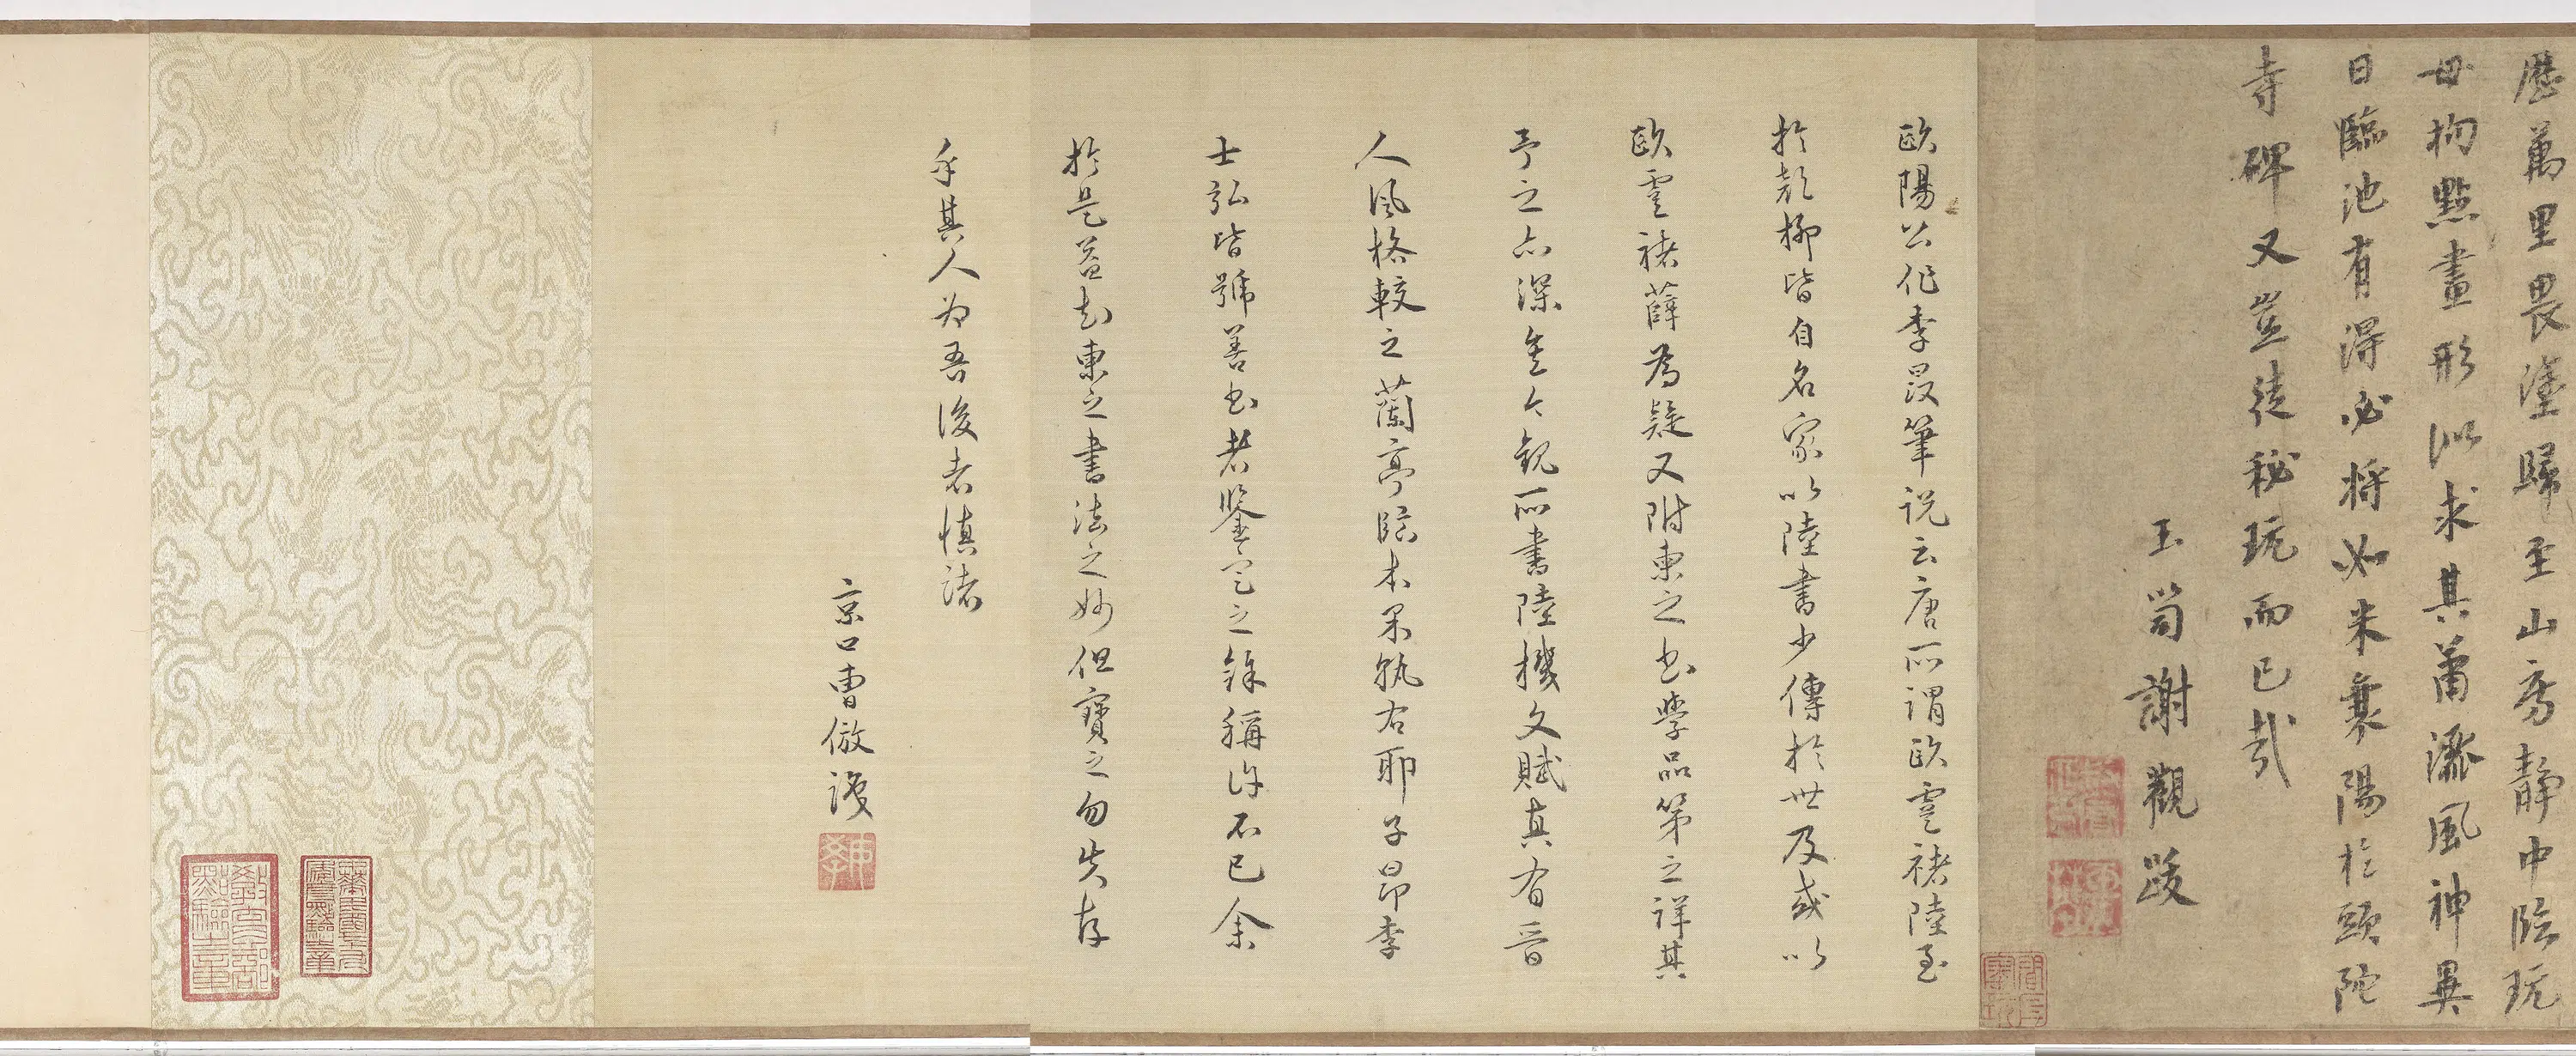 歷萬里畏塗歸至山房靜中臨玩
毋拘點畫形似求其蕭灑風神異
日臨池有得必將如米襄陽於頭陀
寺碑又豈徒秘玩而已哉
玉笥謝觀跋
歐陽公作李晸筆說云唐所謂歐虞褚陸至
於顏柳皆自名家以陸書少傳於世及或以
歐虞褚薛為疑又附柬之書學品第之詳其
予之亦深矣今觀所書陸機文賦真有晉
人風格較之蘭亭臨本果孰右耶子昂李
士弘皆號善書者鑒定之餘稱許不已余
於是益知柬之書法之妙但寶之勿失存
乎其人為吾後者慎諸
京口曹倣謹